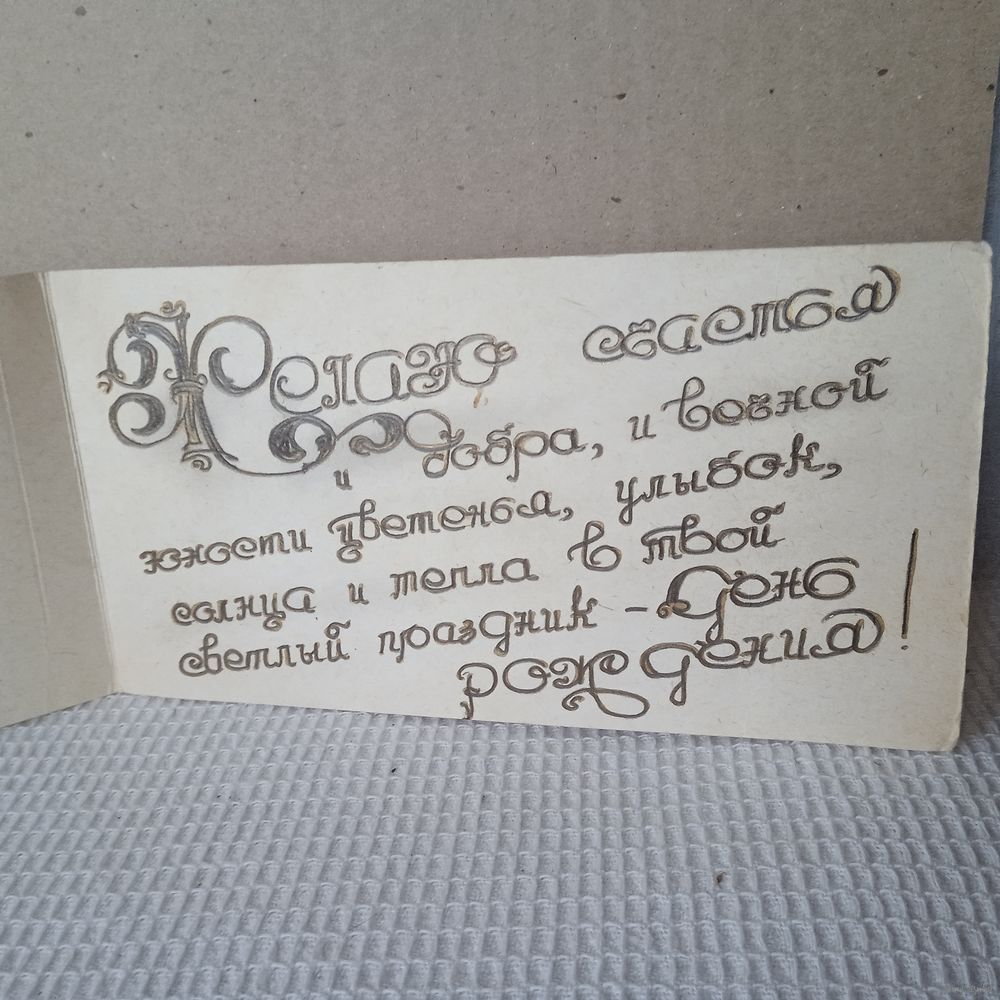 Желаю счастья
и добра, и вечной
юности цветенья, улыбок,
солнца и тепла в твой
светлый праздник - День
рождения!